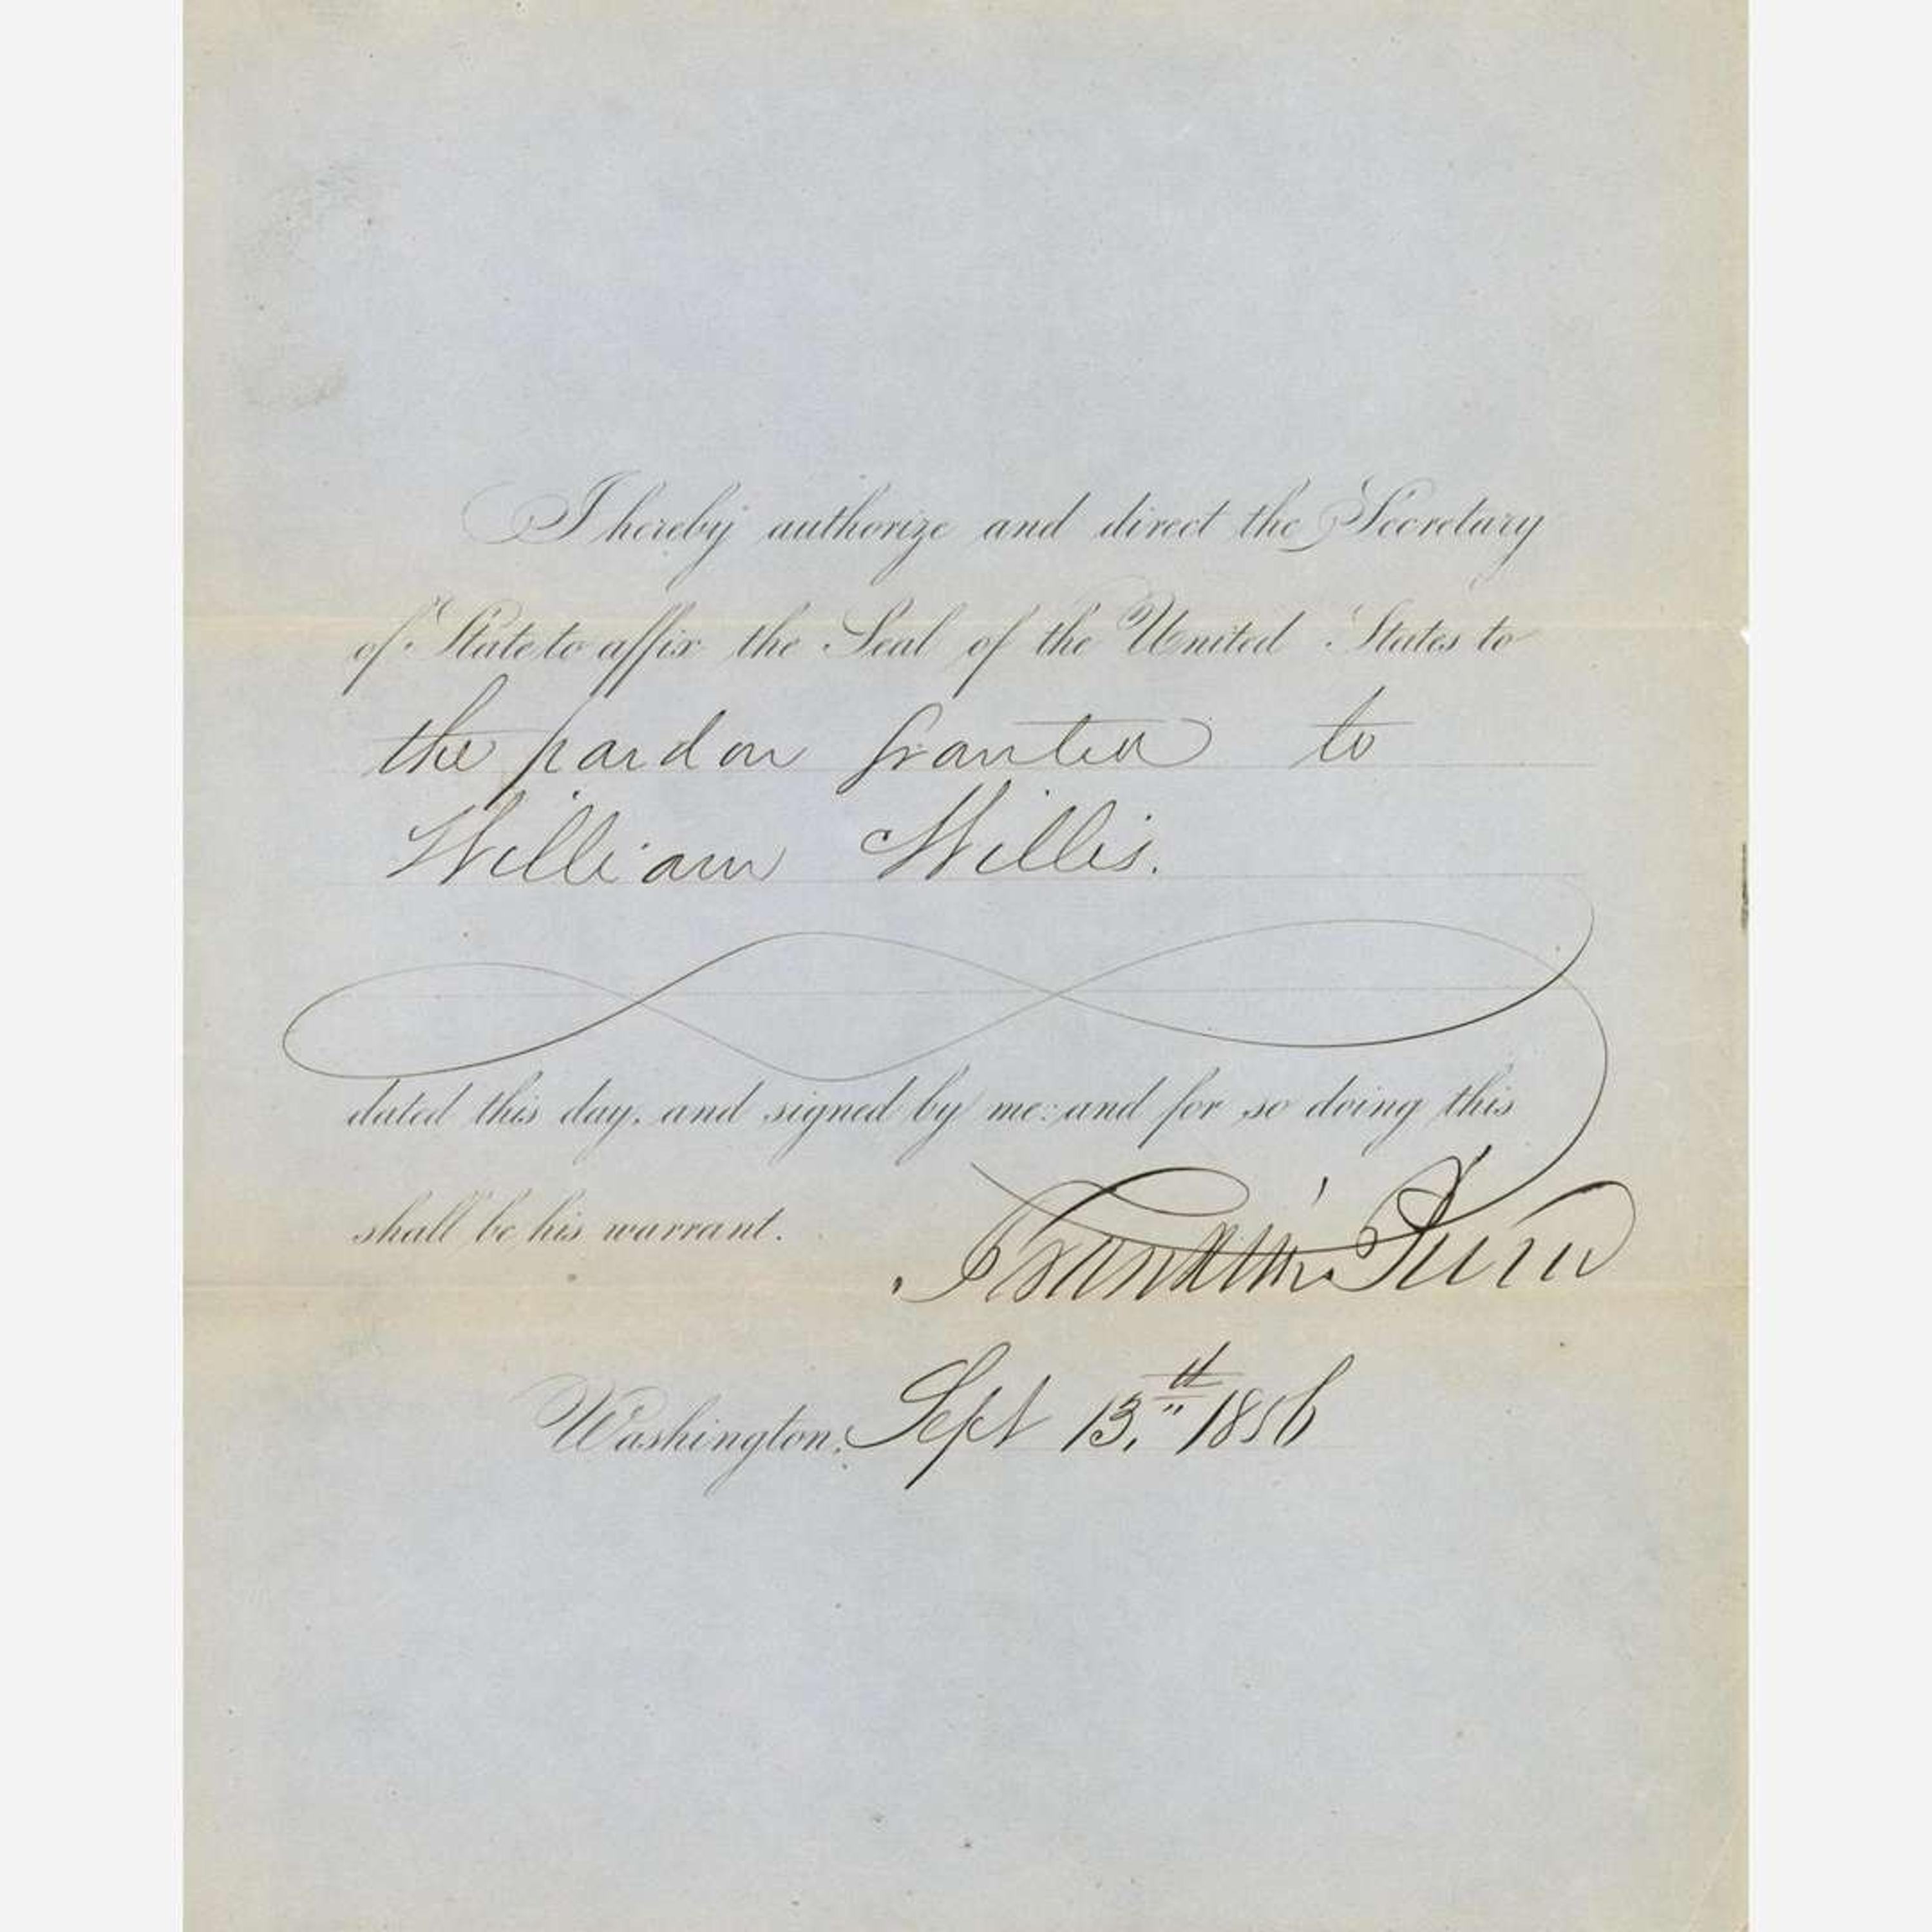 I hereby authorize and direct the Secretary
of State to affix the Seal of the United States to
the pardon granted to
William Willis.
dated this day, and signed by me: and for so doing this
shall be his warrant.
Franklin Pierce
Washington, Sept 13,th 1856